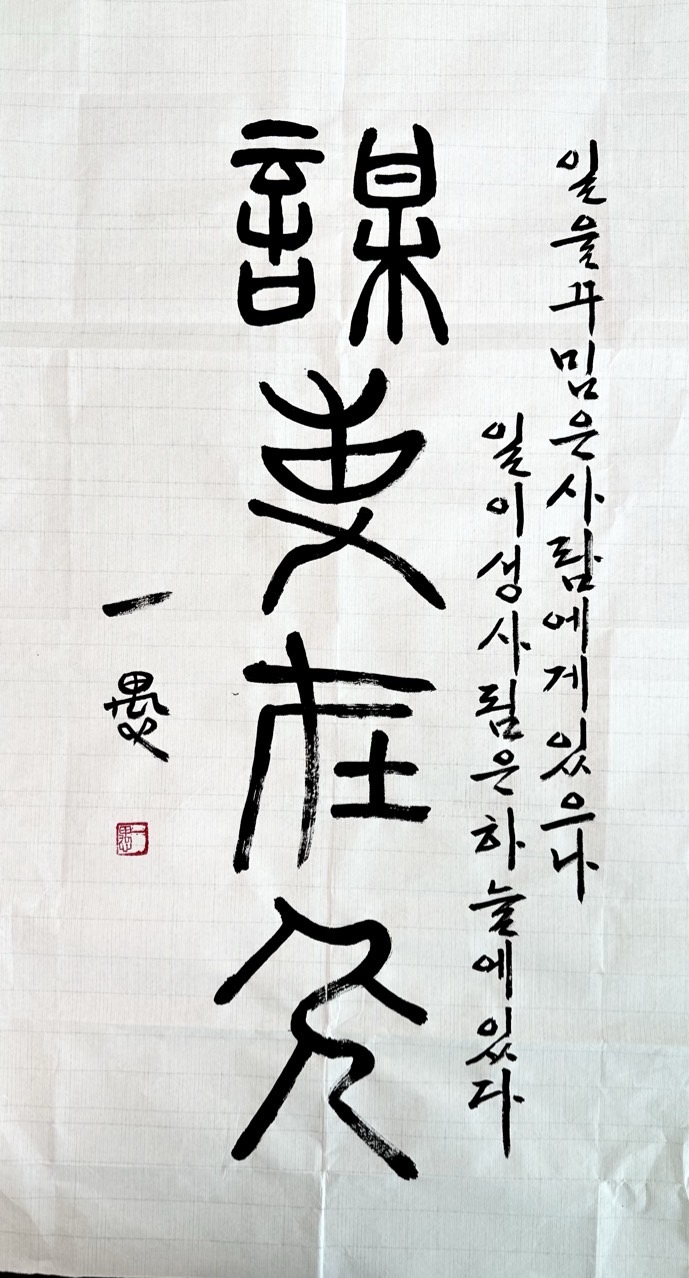 일을꾸밈은사람에게있으나
일이생사됨은하늘에있다
謀事在人
一愚
一愚